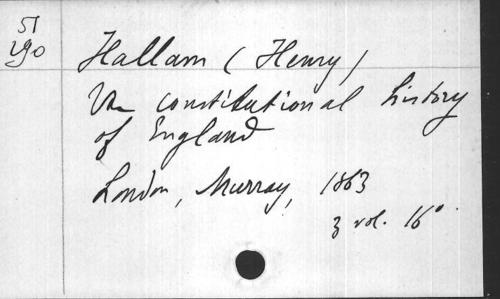 51
290
Hallam (Henry)
The constitutional history
of England
London, Murray, 1863
3 vol. 16°